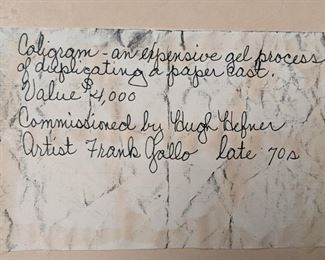 Caligram - an expensive gel process
of duplicating a paper cast.
Value $4,000
Commissioned by Hugh Hefner
Artist Frank Gallo late 70s